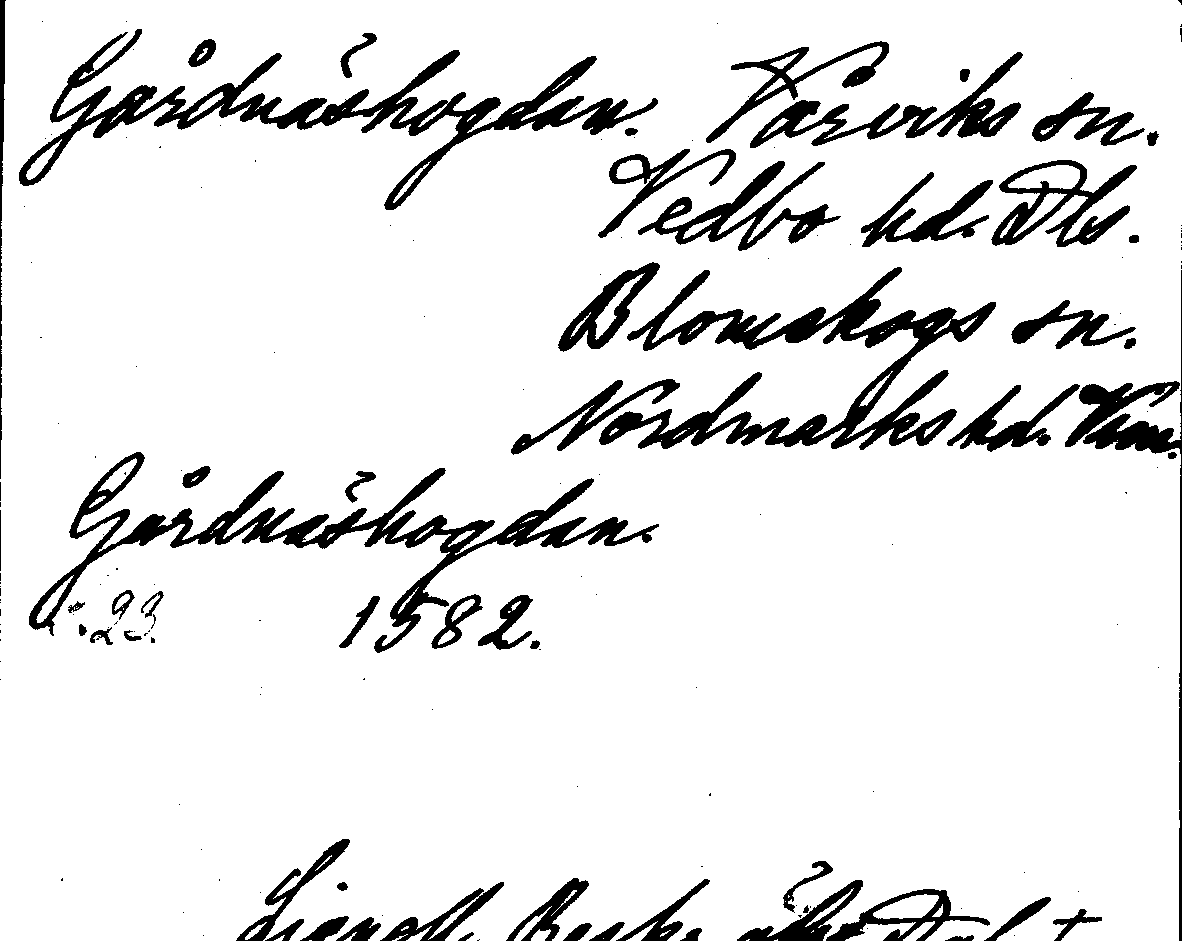 Gårdnäshogdan. Vårviks sn.
Vedbo hd. Dls.
Blomskogs sn.
Nordmarks hd. Vrm.
Gårdnäshogdan.
s. 23. 1582.
Lignell, Beskr. öfver Dal. I